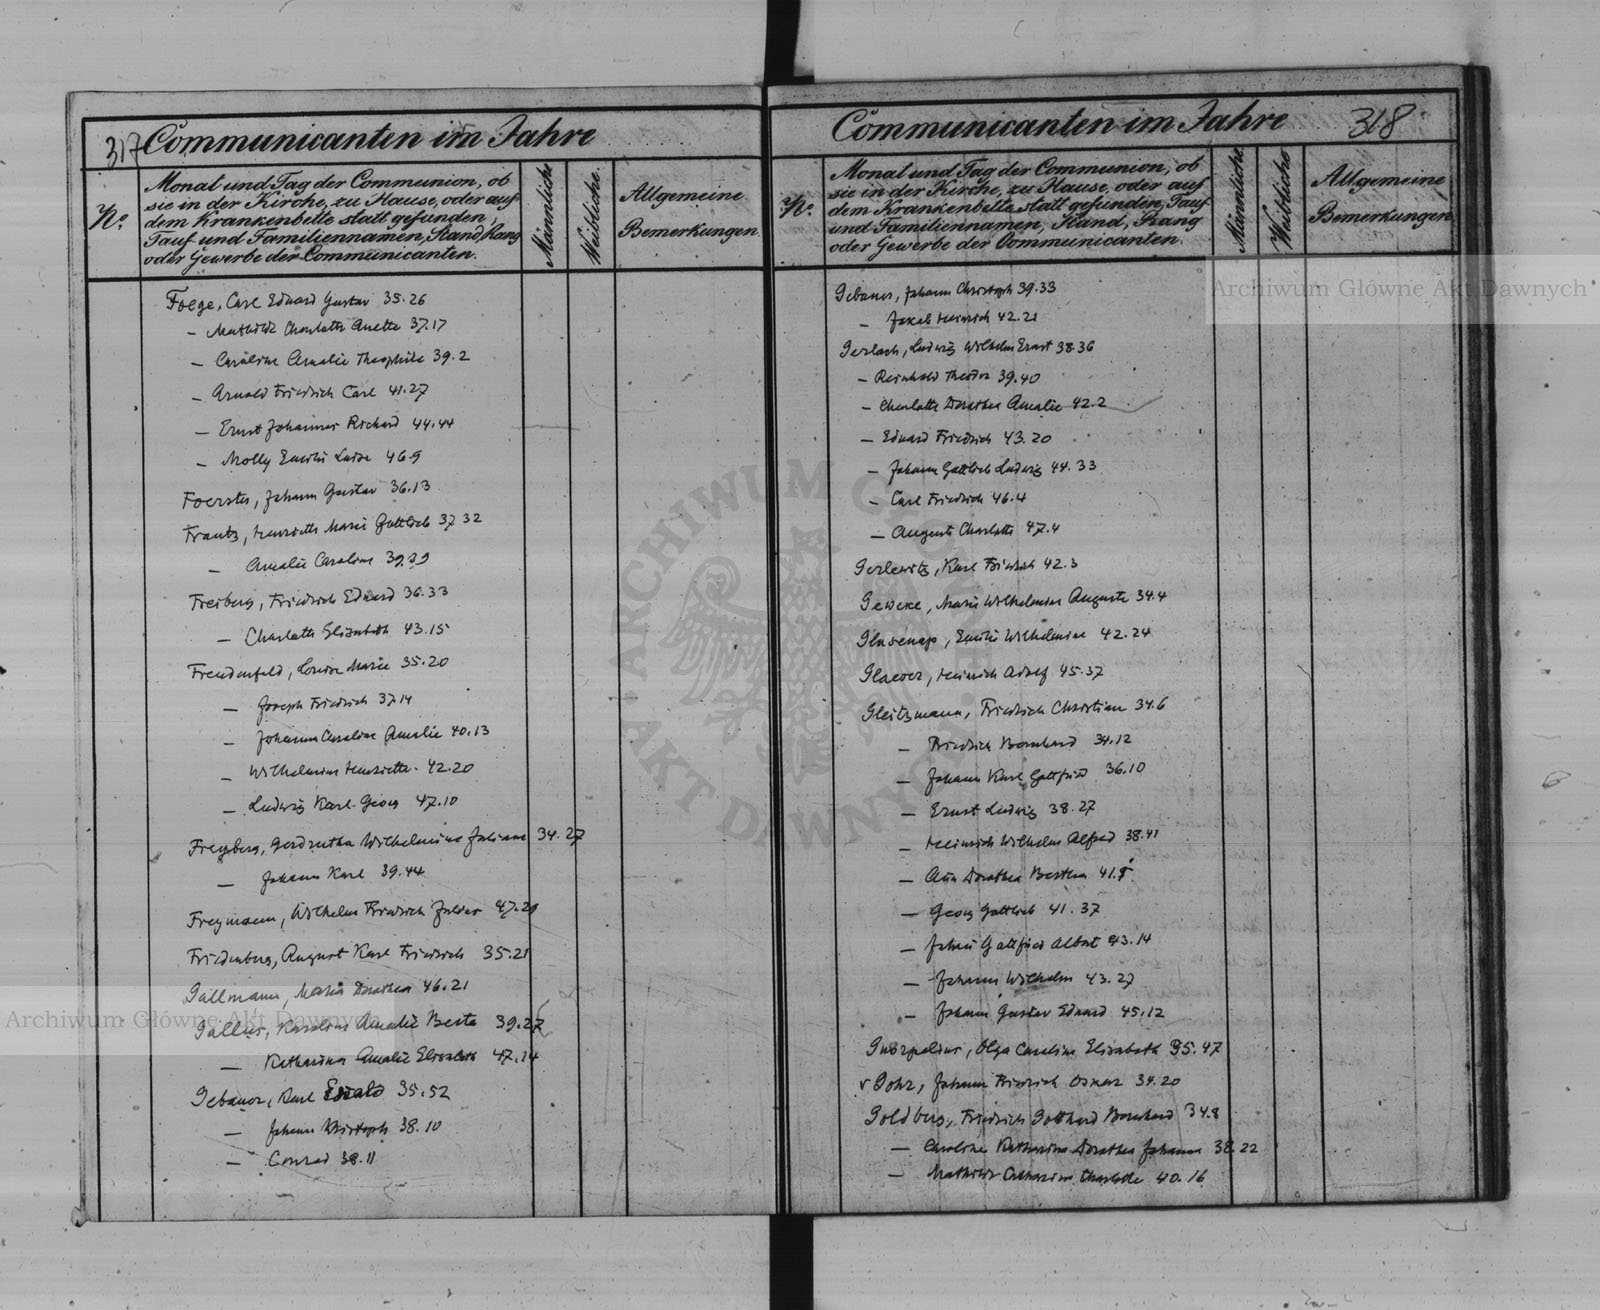 317 Communicanten im Jahre
No.
Monat und Tag der Communion, ob
sie in der Kirche, zu Hause, oder auf
dem Krankenbette statt gefunden,
Tauf und Familiennamen, Stand, Rang
oder Gewerbe der Communicanten.
Männliche
Weibliche.
Allgemeine
Bemerkungen.
Foege, Carl Eduard Gustav 35.26
— Mathilde Charlotte Anette 37.17
— Caroline Amalie Theophile 39.2
— Arnold Friedrich Carl 41.27
— Ernst Johannes Richard 44.44
— Molly Emilie Luise 46.9
Foerster, Johann Gustav 36.13
Frantz, Henriette Marie Gottlieb 37 32
— Amalie Caroline 39.39
Freiberg, Friedrich Eduard 36.33
— Charlotte Elisabeth 43.15
Freudenfeld, Louise Marie 35.20
— Joseph Friedrich 37.14
— Johanna Caroline Amalie 40.13
— Wilhelmine Henriette. 42.20
— Ludwig Karl Georg 47.10
Freyberg, Gerdrutha Wilhelmine Juliane 34.27
— Johann Karl 39.44
Freymann, Wilhelm Friedrich Julius 47.29
Friedenberg, August Karl Friedrich 35.21
Gallmann, Maria Dorothea 46.21
Galler, Karoline Amalie Berta 39.27
— Katharina Amalie Elisabeth 47.14
Gebauer, Karl Ewald 35.52
— Johann Christoph 38.10
— Conrad 38.11
Communicanten im Jahre 318
No.
Monat und Tag der Communion, ob
sie in der Kirche, zu Hause, oder auf
dem Krankenbette statt gefunden, Tauf
und Familiennamen, Stand, Rang
oder Gewerbe der Communicanten.
Männliche.
Weibliche
Allgemeine
Bemerkungen
Gebauer, Johann Christoph 39.33
— Jakob Heinrich 42.21
Gerlach, Ludwig Wilhelm Ernst 38.36
— Reinhold Theodor 39.40
— Charlotte Dorothea Amalie 42.2
— Eduard Friedrich 43.20
— Johann Gottlieb Ludwig 44.33
— Carl Friedrich 46.4
— Auguste Charlotte 47.4
Gerlewitz, Karl Friedrich 42.3
Gewcke, Marie Wilhelmine Auguste 34.4
Glasenap, Emilie Wilhelmine 42.24
Glaeser, Heinrich Adolf 45.37
Gleitzmann, Friedrich Christian 34.6
— Friedrich Bernhard 34.12
— Johann Karl Gottfried 36.10
— Ernst Ludwig 38.27
— Heinrich Wilhelm Alfred 38.41
— Ann Dorothea Bertha 41.5
— Georg Gottlieb 41.37
— Johann Gottfried Albert 43.14
— Johann Wilhelm 43.27
— Johann Gustav Eduard 45.12
Olga Caroline Elisabeth 35.47
v Gohr, Johann Friedrich Oskar 34.20
Goldberg, Friedrich Gotthard Bernhard 34.8
— Caroline Katharina Dorothea Johanna 38.22
— Mathilde Catharina Charlotte 40.16
Archiwum Główne Akt Dawnych
Archiwum Główne Akt Dawnych